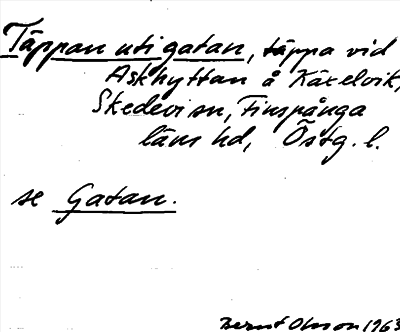 Täppan uti gatan, täppa vid
Askhyttan å Kätelvik,
Skedevi sn, Finspånga
läns hd, Östg. l.
se Gatan.
Bernt Olsson 1963